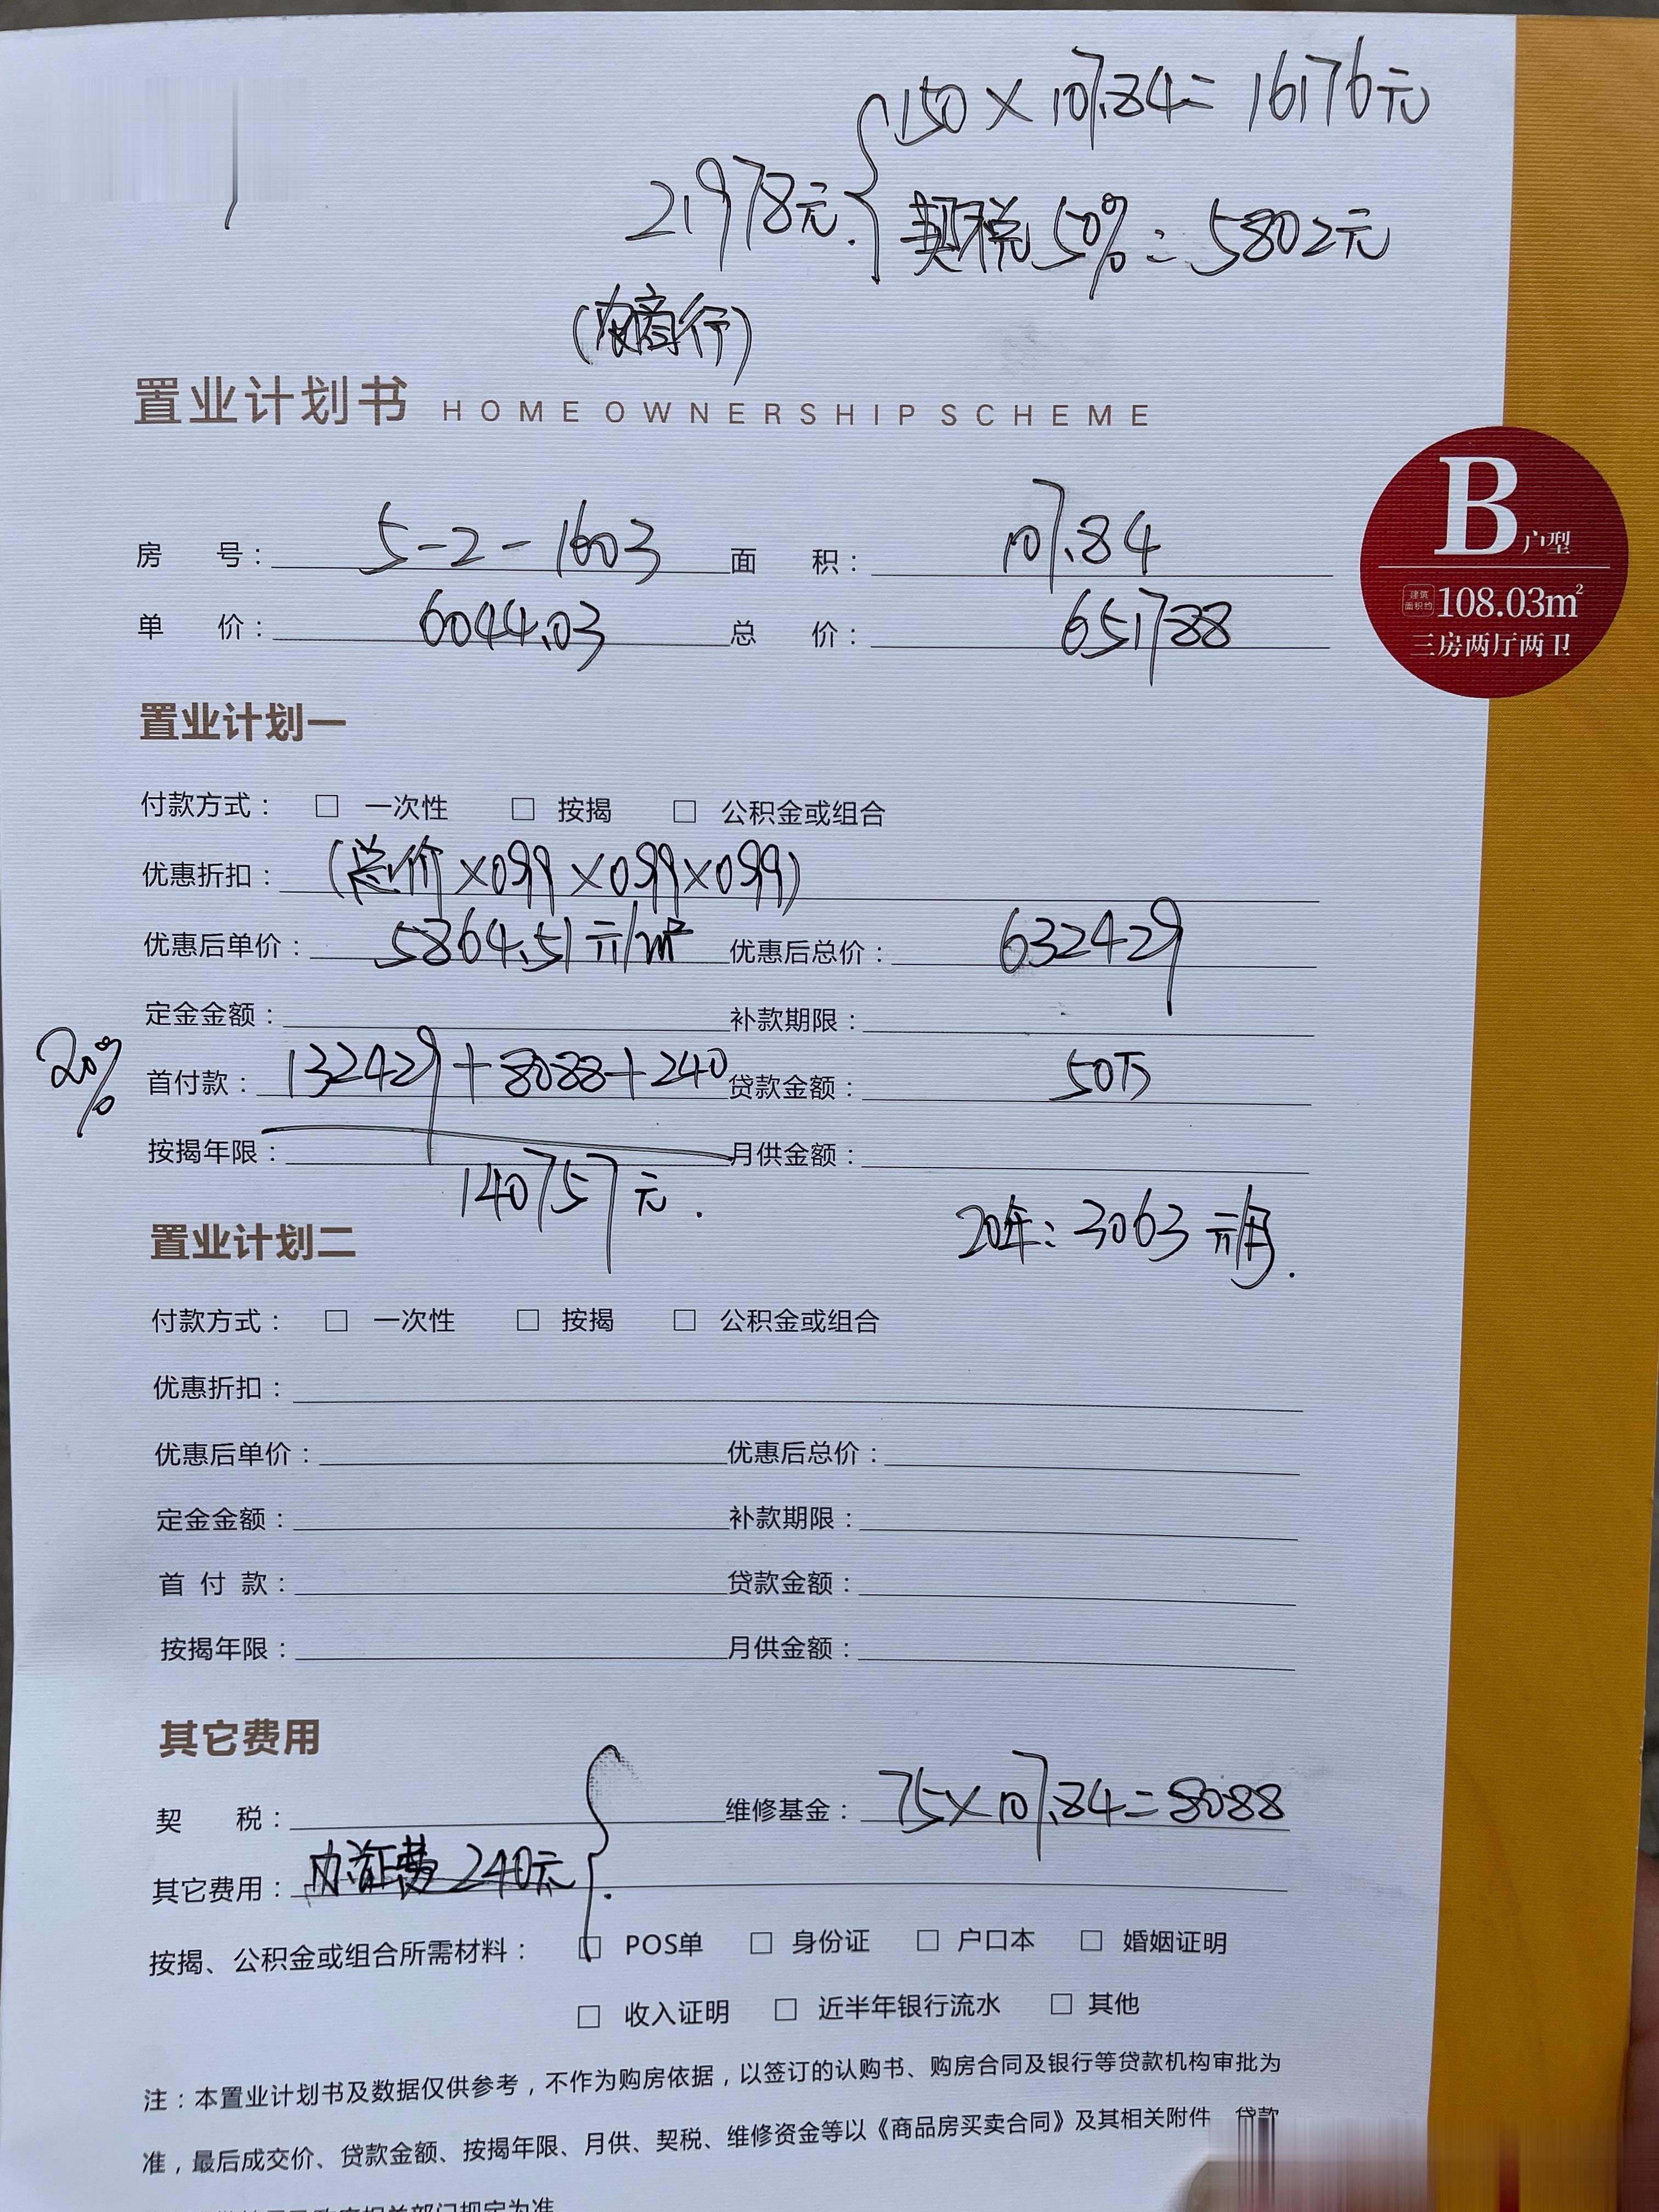 150×107.84=16176元
21978元.
契税50%=5802元
(农商行)
置业计划书 HOME OWNERSHIP SCHEME
B户型
建筑面积约 108.03m²
三房两厅两卫
房 号: 5-2-1603 面 积: 107.84
单 价: 6044.03 总 价: 651788
置业计划一
付款方式: □ 一次性 □ 按揭 □ 公积金或组合
优惠折扣: (总价×099×099×099)
优惠后单价: 5864.51元/m² 优惠后总价: 632429
定金金额: 补款期限:
20% 首付款: 132429+8088+240 贷款金额: 50万
按揭年限: 月供金额:
140757元.
20年: 3063元/月.
置业计划二
付款方式: □ 一次性 □ 按揭 □ 公积金或组合
优惠折扣:
优惠后单价: 优惠后总价:
定金金额: 补款期限:
首付款: 贷款金额:
按揭年限: 月供金额:
其它费用
契 税: 维修基金: 75×107.84=8088
其它费用: 办证费240元
按揭、公积金或组合所需材料: □ POS单 □ 身份证 □ 户口本 □ 婚姻证明
□ 收入证明 □ 近半年银行流水 □ 其他
注:本置业计划书及数据仅供参考,不作为购房依据,以签订的认购书、购房合同及银行等贷款机构审批为
准,最后成交价、贷款金额、按揭年限、月供、契税、维修资金等以《商品房买卖合同》及其相关附件 贷款
相关部门规定为准